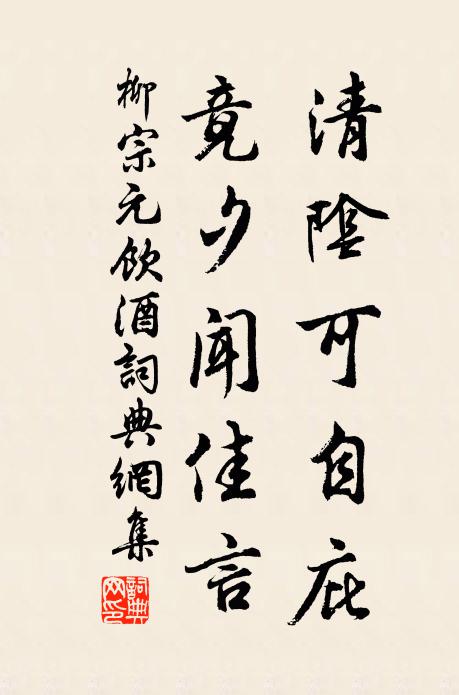 清陰可自庇
竟夕聞佳言
柳宗元飲酒詞典網集
詞典
网印